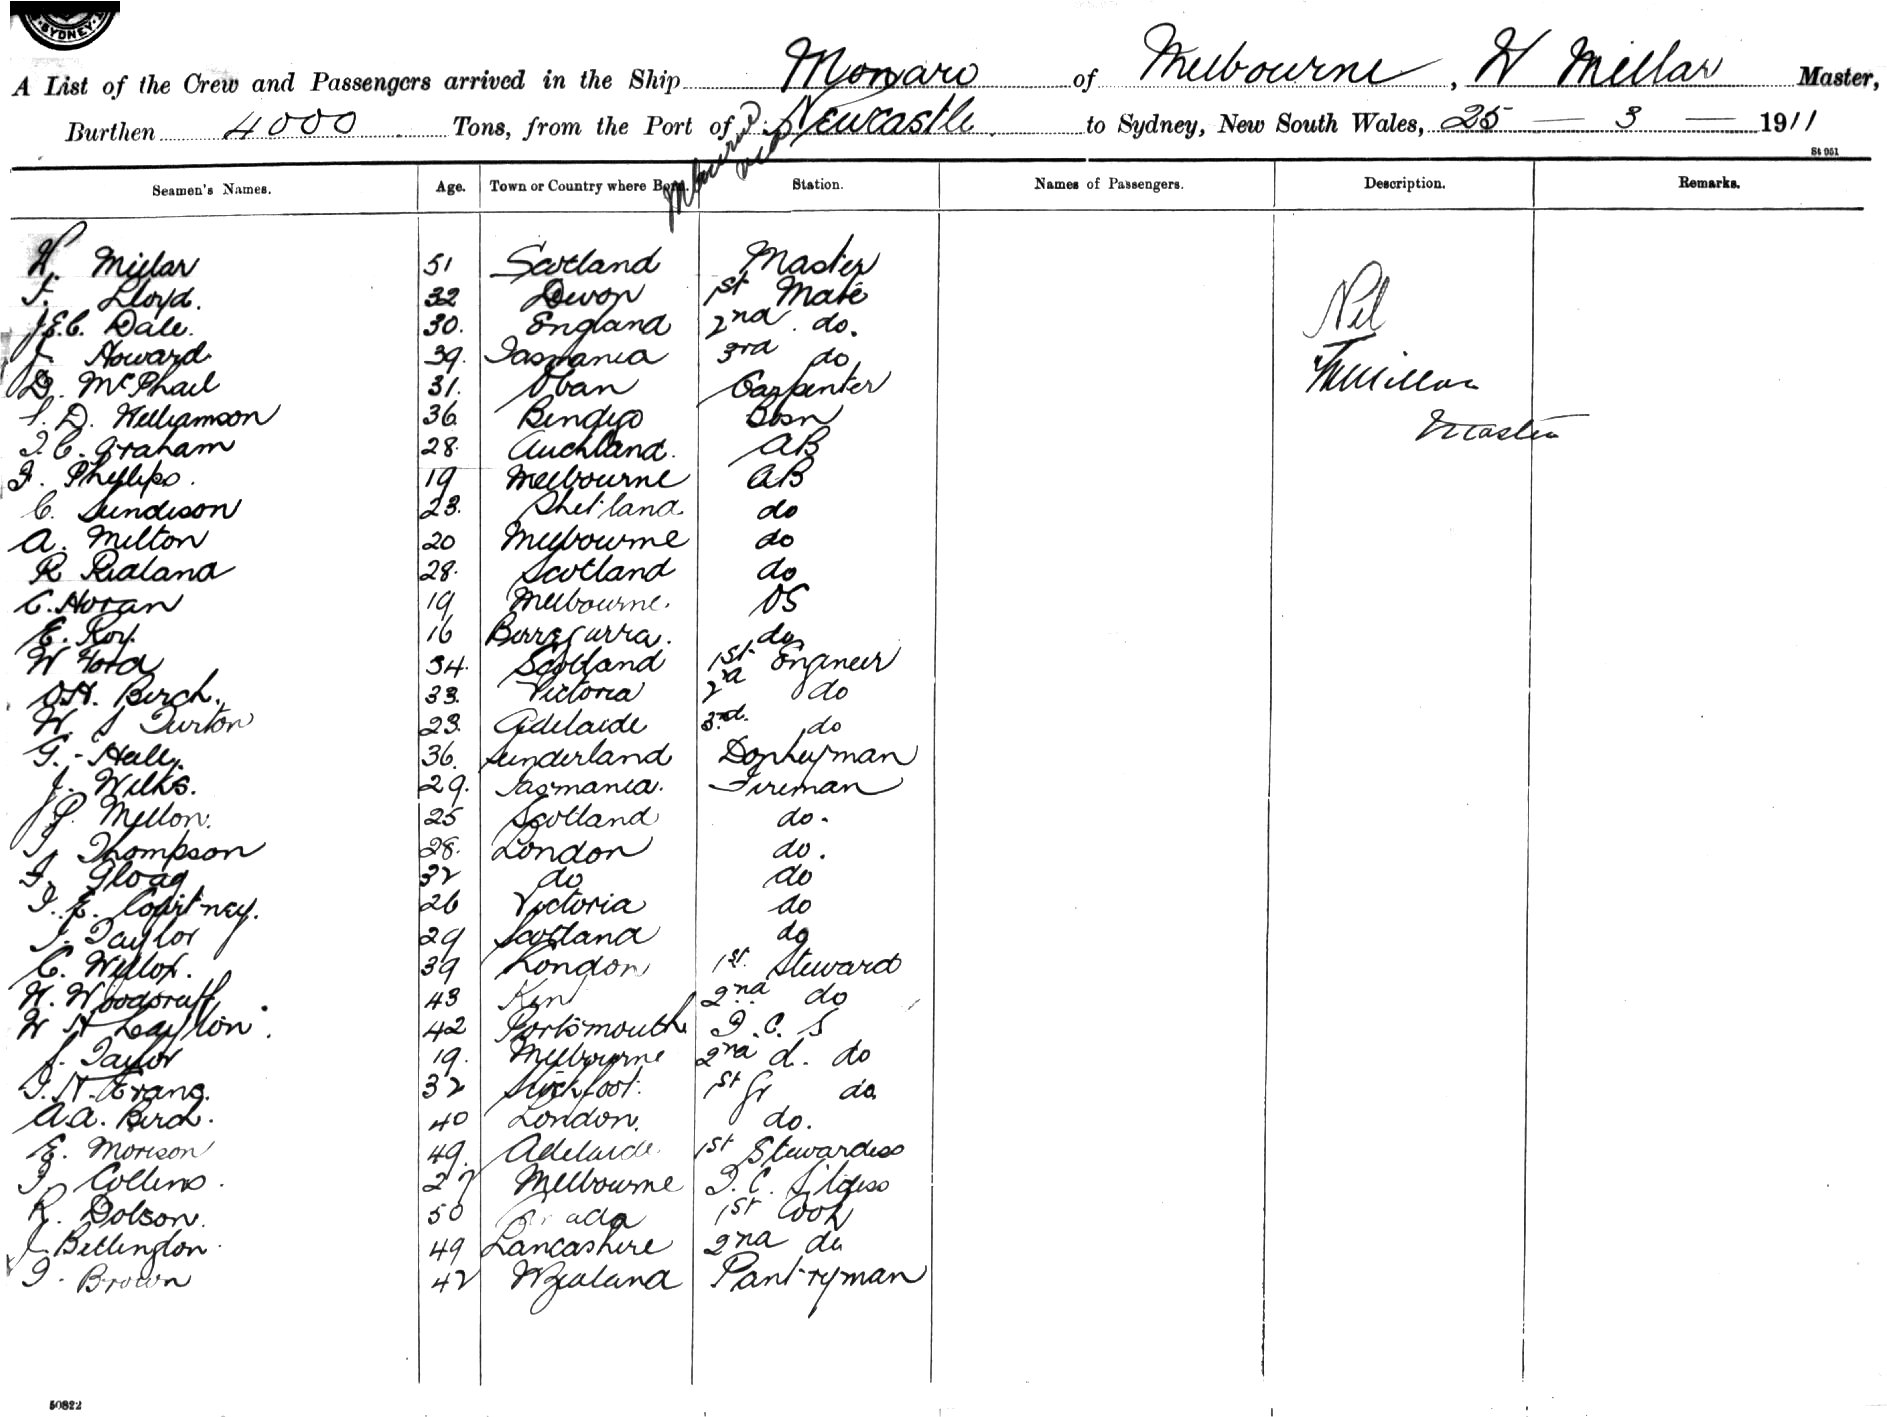 SYDNEY
A List of the Crew and Passengers arrived in the Ship Monaro of Melbourne, W Millar Master,
Burthen 4000 Tons, from the Port of Melbourne via Newcastle to Sydney, New South Wales, 25 — 3 — 1911
St 951
Seamen's Names. Age. Town or Country where Born. Station. Names of Passengers. Description. Remarks.
W. Millar 51 Scotland Master
F. Lloyd. 32 Devon 1st Mate
J.E.C. Dale. 30. England 2nd do.
J. Howard. 39. Tasmania 3rd do
D. McPhail 31. Oban Carpenter
D. Williamson 36 Bendigo Bosn
C. Graham 28. Auckland. AB
Phillips. 19 Melbourne AB
C. Sundison 23. Shetland do
A. Milton 20 Melbourne do
R Ridland 28. Scotland do
C. Horan 19 Melbourne. OS
E. Roy. 16 Birregurra. do
W Ford 34. Scotland 1st Engineer
O.H. Birch. 33. Victoria 2nd do
W. S Turton 23. Adelaide 3rd. do
G. Hall. 36. Sunderland Donkeyman
J. Wilks. 29. Tasmania. Fireman
J P. Mellon. 25 Scotland do.
Thompson 28. London do.
Gloag 32 do do
E. Courtney. 26 Victoria do
J. Taylor 29 Scotland do
C. Willox. 39 London 1st. Steward
W. Woodruff 43 2nd do
W H Layton. 42 Portsmouth S
Taylor 19. Melbourne 2nd d. do
H. Evans. 32 1st Gr do
A.A. Birch. 40 London. do.
E. Morison 49. Adelaide 1st Stewardess
Collins. 27 Melbourne C. S'tdess
R. Dobson. 50 1st Cook
J Bellington. 49 Lancashire 2nd do
Brown 42 N Zealand Pantryman
Nil
W Millar
Master
50822